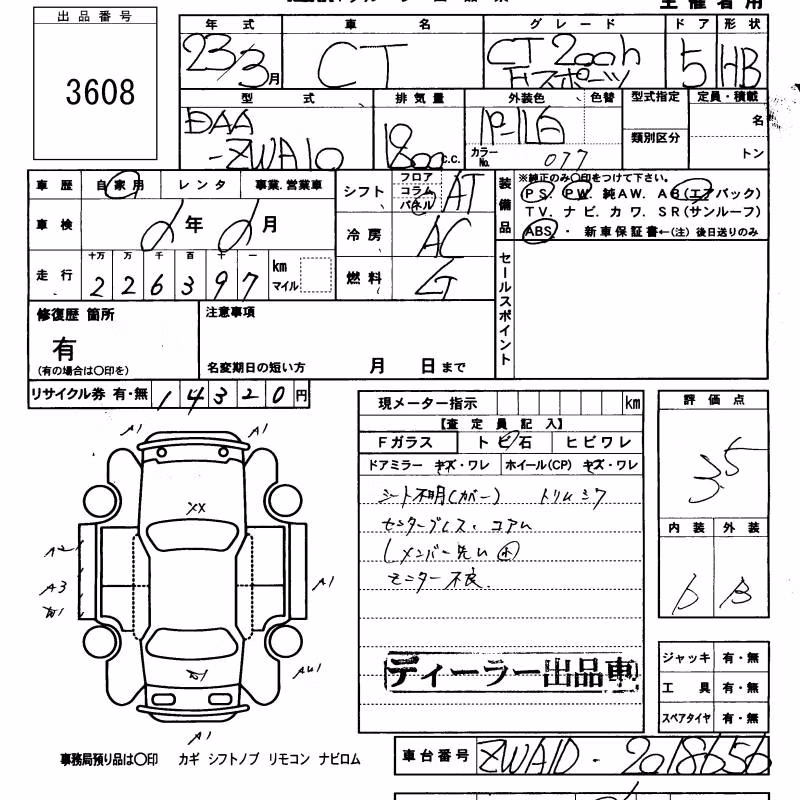 主催者用
出品番号
3608
年式 車名 グレード ドア 形状
23/3月 CT CT 200h Fスポーツ 5 HB
型式 排気量 外装色 色替 型式指定 定員・積載
DAA-ZWA10 1800 C.C. カラーNo. 077 類別区分 名
トン
車歴 自家用 レンタ 事業.営業車
シフト フロア コラム パネル AT
車検 年 月
冷房 AC
走行 十万 万 千 百 十 一 km マイル
2 2 6 3 9 7
燃料
装備品 ※純正のみ〇印をつけて下さい。
PS. PW. 純AW. AB(エアバック)
TV. ナビ. カワ. SR(サンルーフ)
ABS. ・ 新車保証書←(注) 後日送りのみ
セールスポイント
修復歴 箇所
有
(有の場合は〇印を)
注意事項
名変期日の短い方 月 日まで
リサイクル券 有・無 14320円
現メーター指示 km
【査定員記入】
Fガラス トビ石 ヒビワレ
ドアミラー キズ・ワレ ホイール(CP) キズ・ワレ
シート不明(カバー) トリムシワ
センターブレス・コアム
Lメンバー先ム
モニター不良.
ディーラー出品車
評価点
3.5
内装 外装
b B
ジャッキ 有・無
工具 有・無
スペアタイヤ 有・無
A1 A1
XX
A2
A3
A1
A1
事務局預り品は〇印 カギ シフトノブ リモコン ナビロム
車台番号 ZWA10-2018656